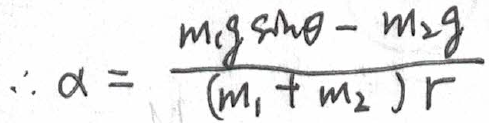 ∴ α = \frac{m_1 g \sin\theta - m_2 g}{(m_1 + m_2) r}